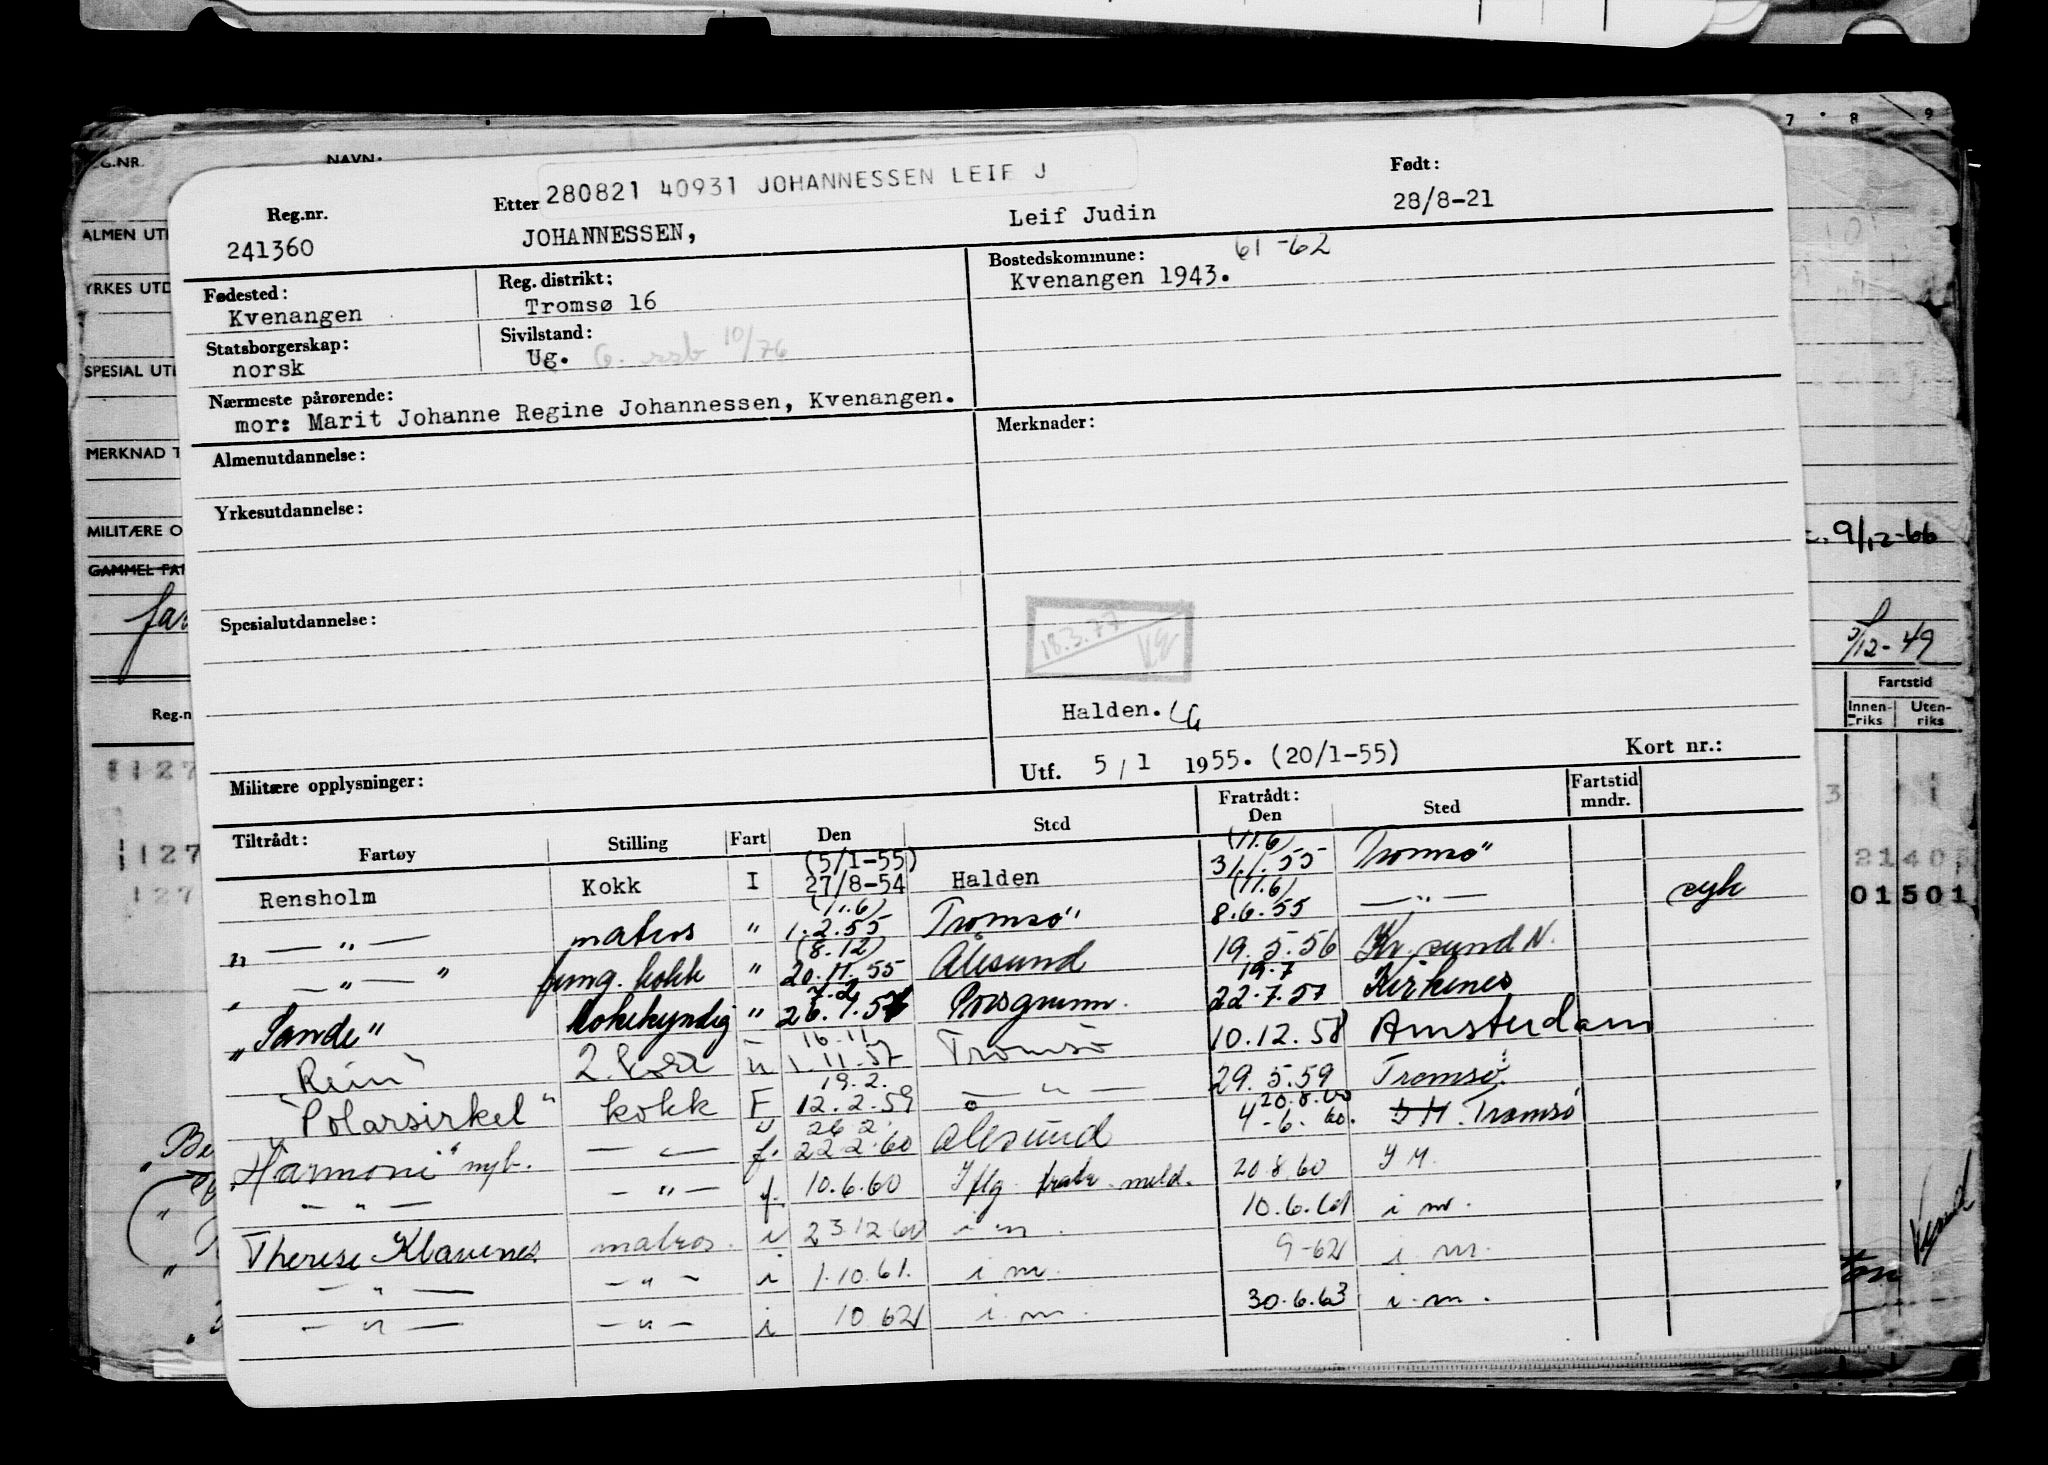 7 8 9
G.NR. NAVN:
280821 40931 JOHANNESSEN LEIF J
Reg.nr. Etter Født:
241360 JOHANNESSEN, Leif Judin 28/8-21
ALMEN UT
Fødested: Reg. distrikt: Bostedskommune: 61-62
Kvenangen Tromsø 16 Kvenangen 1943.
YRKES UTD
Statsborgerskap: Sivilstand:
norsk Ug. G. ssb 10/76
SPESIAL UT
Nærmeste pårørende:
mor: Marit Johanne Regine Johannessen, Kvenangen.
Almenutdannelse: Merknader:
MERKNAD T
Yrkesutdannelse:
MILITÆRE O
9/12-66
GAMMEL FAR
Spesialutdannelse:
18.3.77
/12-49
Fartstid
Innen-riks Uten-riks
Reg.n
Halden.
Utf. 5/1 1955. (20/1-55) Kort nr.:
Militære opplysninger:
Tiltrådt: Fratrådt: Fartstid mndr.
Fartøy Stilling Fart Den Sted Den Sted
Rensholm Kokk I (5/1-55) 27/8-54 Halden (11.6) 31.1.55 Tromsø
" — " — matros " (11.6) 1.2.55 Tromsø (11.6) 8.6.55 — " — syk
" — " — " fung. kokk " (8.12) 20.11.55 Ålesund 19.5.56 Kr.sund N.
"Sande" kokekyndig " 7.2 26.1.57 Porsgrunn. 19.7 22.7.57 Kirkenes
"Rein" 2. kokk " 16.11 1.11.57 Tromsø 10.12.58 Amsterdam
"Polarsirkel" kokk F 19.2. 12.2.59 — " — 29.5.59 Tromsø
"Harmoni" nyb. — " — f. 26.2. 22.2.60 Ålesund 20.8.60 4-6.60. I M. Tromsø
— " — — " — f. 10.6.60 Iflg. fratr. meld. 20.8.60 I M.
Therese Klavenes matros. i 23.12.60 i m. 10.6.61 i m.
— " — — " — i 1.10.61. i m. 9-62 i m.
— " — — " — i 10.62 i.m. 30.6.63 i.m.
1127
1127
127
21403
01501